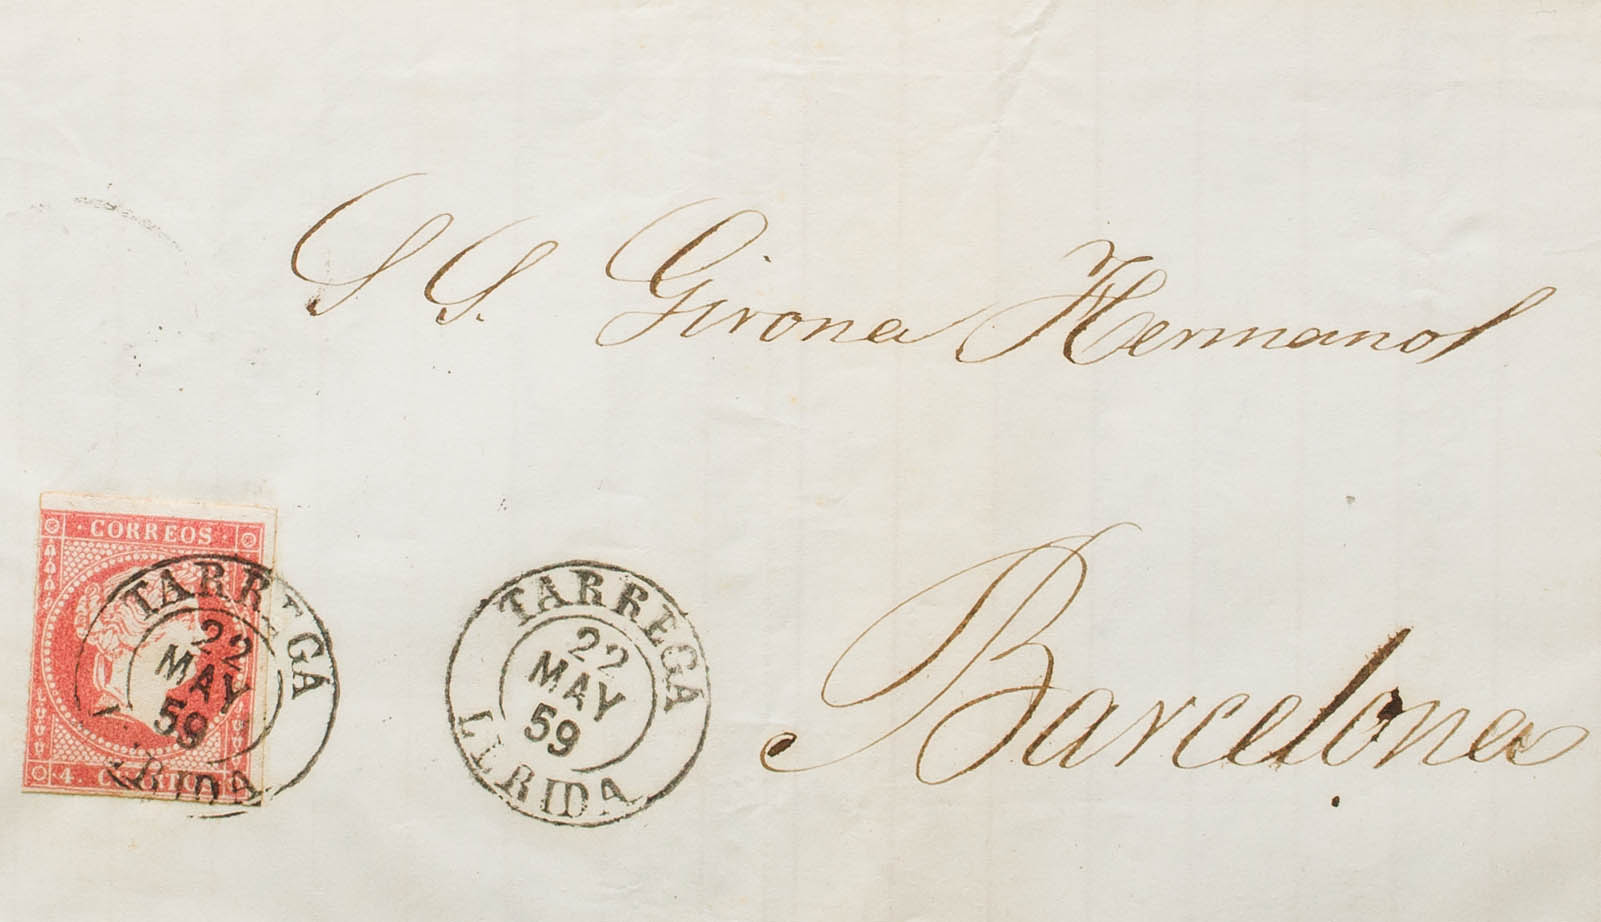 S S. Girona Hermanos
Barcelona
CORREOS
4. CUARTOS
TARREGA
22
MAY
59
LERIDA
TARREGA
22
MAY
59
LERIDA